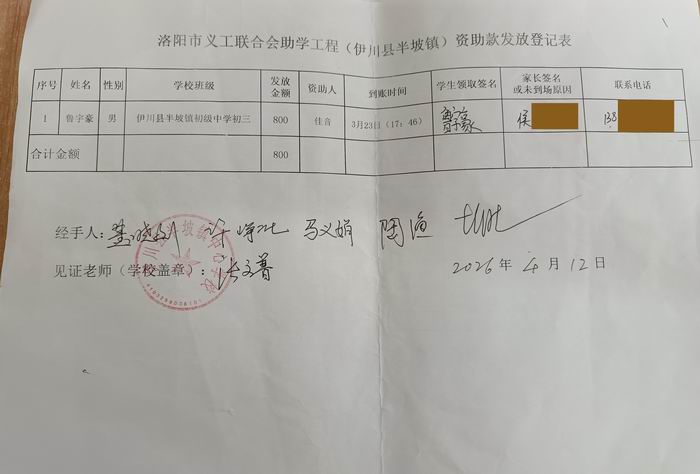 洛阳市义工联合会助学工程（伊川县半坡镇）资助款发放登记表
序号 姓名 性别 学校班级 发放金额 资助人 到账时间 学生领取签名 家长签名或未到场原因 联系电话
1 鲁宇豪 男 伊川县半坡镇初级中学初三 800 佳音 3月23日（17：46） 鲁宇豪 侯 138
合计金额 800
经手人： 马义娟 陶渔
见证老师（学校盖章）： 张文普
2026年4月12日